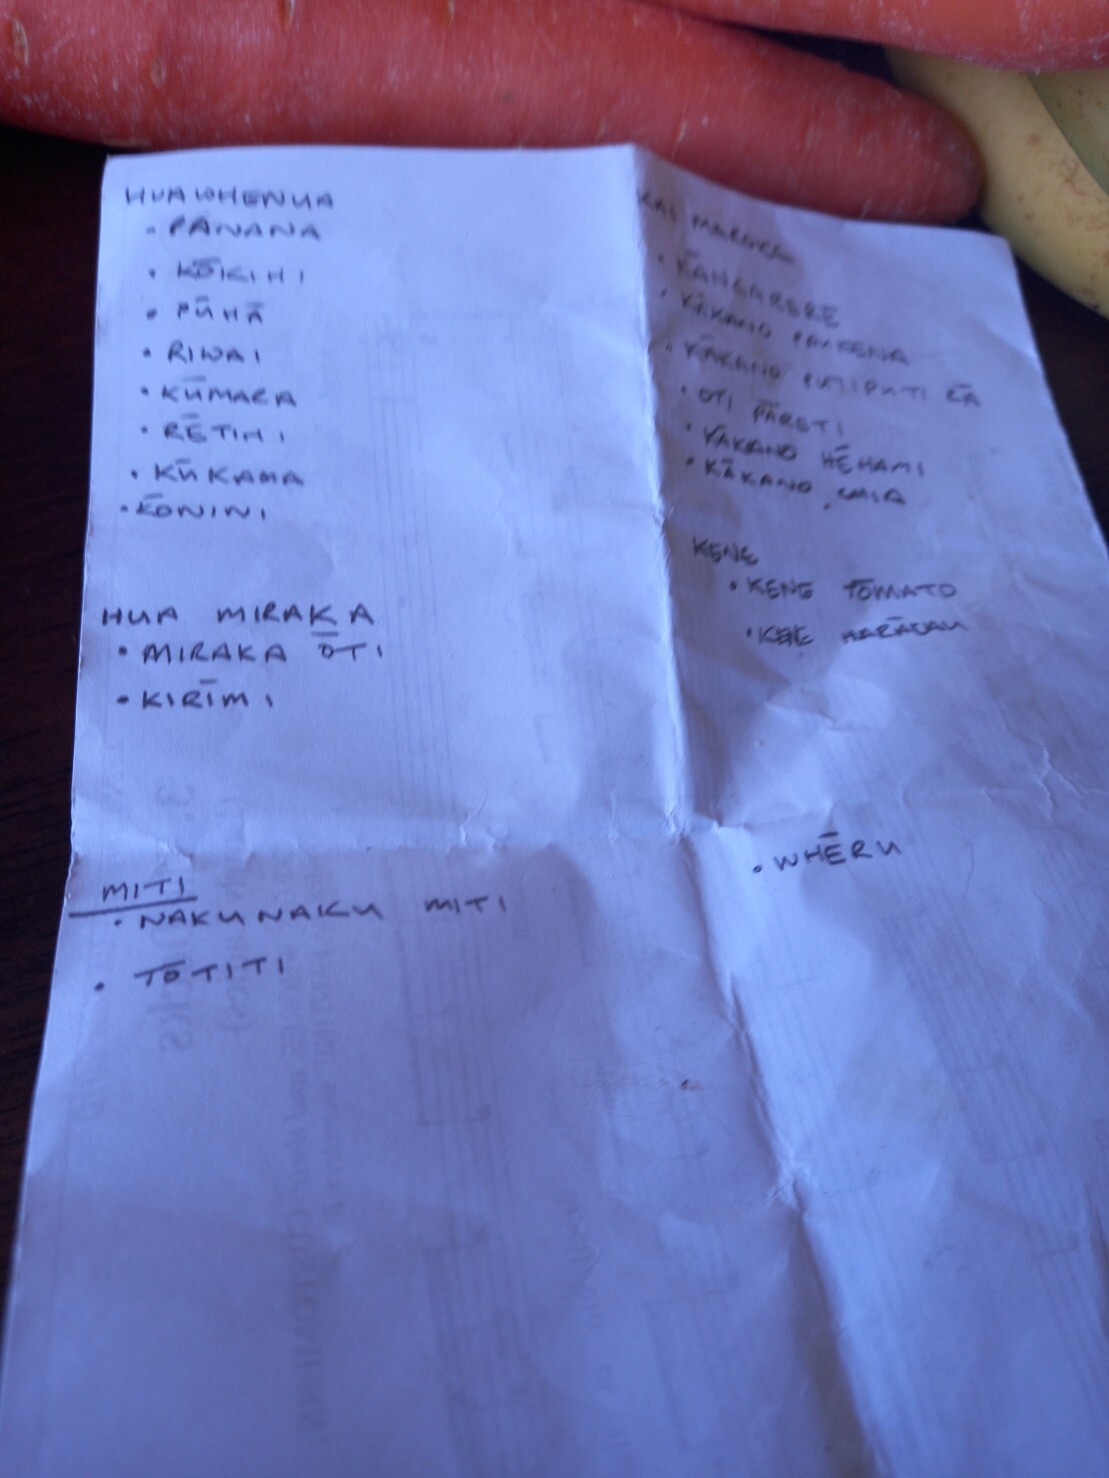 HUA WHENUA
• PANANA
• KŌKIHI
• PŪHĀ
• RIWAI
• KŪMARA
• RĒTIHI
• KŪKAMA
• KŌNINI
HUA MIRAKA
• MIRAKA ŌTI
• KIRĪMI
MITI
• NAKUNAKU MITI
• TŌTITI
KAI MAROKE
• KĀNGARERE
• KĀKANO PAUKENA
• KĀKANO PUTIPUTI RĀ
• OTI PĀRETI
• KĀKANO HĒHAMI
• KĀKANO CHIA
KENE
• KENE TŌMATO
• KENE
• WHĒRU